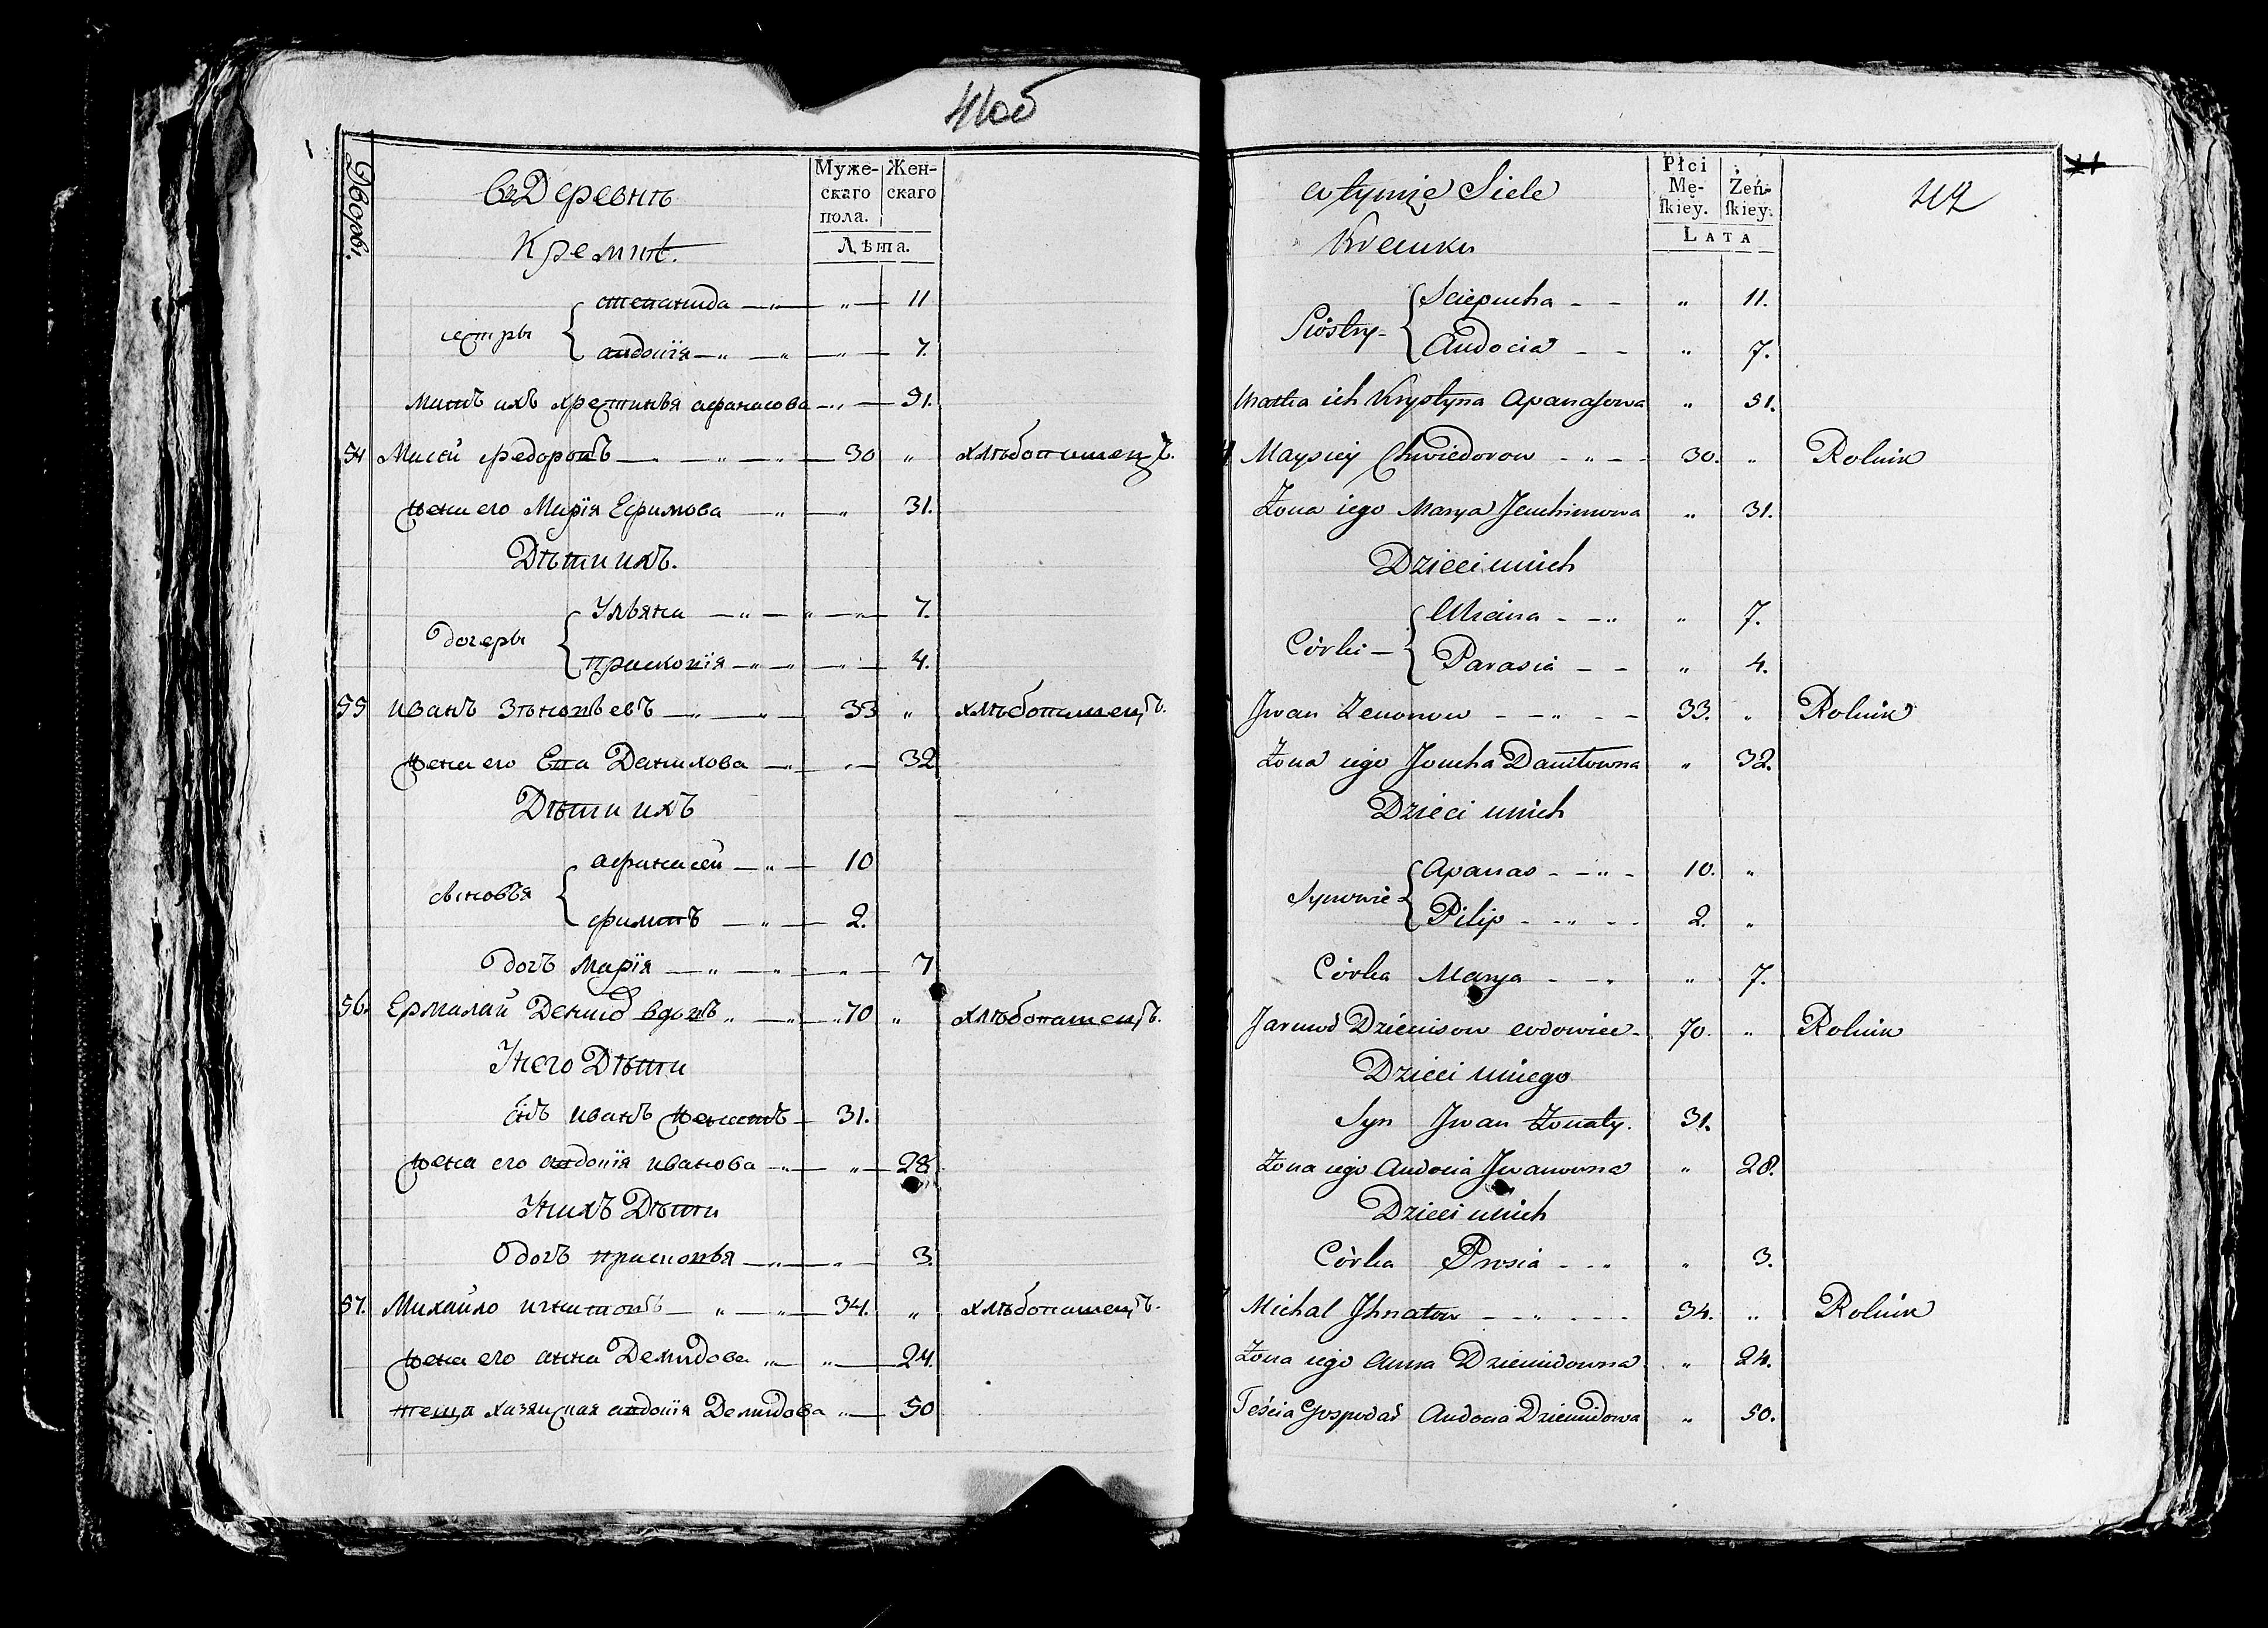 41об
Дворы.
въ Деревнѣ
Мужескаго пола.
Женскаго
Лѣта.
степанида — „ — „ — 11
сестры
авдотія — „ — „ — „ — 7.
мать ихъ хрестинья афанасова — „ — 51.
54 Мисей федоровъ — „ — „ — 30 „ хлѣбопашецъ.
жена его Марія Ефимова — „ — „ 31.
Дѣти ихъ.
Ульяна — „ — „ — „ — 7.
дочеры
прасковія — „ — „ — „ — 4.
55 иванъ Зѣновьевъ — „ — „ — 33 „ хлѣбопашецъ.
жена его Ева Данилова — „ — „ — 32
Дѣти ихъ
афанасей — „ — 10
сыновья
филипъ — „ — 2.
дочь Марія — „ — „ — „ — 7
56. Ермалай Денисо вдовъ „ — „ — „ 70 „ хлѣбопашецъ.
У него Дѣти
сынъ иванъ женатъ — 31.
жена его авдотія иванова — „ — „ — 28
У нихъ Дѣти
дочь прасковья — „ — „ — 3.
57. Михайло игнатовъ — „ — „ — 34. „ хлѣбопашецъ.
жена его анна Демидова „ — „ — 24.
теща хазяиская авдотія Демидова „ — 50
w tymże Siele
Płci Mę-skiey.
Żeń-skiey.
LATA
42
Sciepucha - - „ 11.
Siostry -
Audocia - - „ 7.
Matka ich Krystyna Apanasowa „ 51.
Maysiey Chwiedorow - „ - - 30. „ Rolnik
Żona iego Marya Jauchimowa „ 31.
Dzieci u nich
Ulicina - - „ „ 7.
Córki -
Parasia - - „ 4.
Jwan Zenonow - - „ - - 33. „ Rolnik
Żona iego Joucha Daniłowna „ 32.
Dzieci u nich
Apanas - - „ - 10. „
Synowie -
Pilip - - „ - - 2. „
Córka Marya - - „ „ 7.
Jarmoł Dzienisow wdowiec - 70. „ Rolnik
Dzieci u niego
Syn Jwan Żonaty. 31.
Żona iego Audocia Jwanowna „ 28.
Dzieci u nich
Córka Prosia - - „ „ 3.
Michal Jhnatow - - „ - - - 34. „ Rolnik
Żona iego Anna Dziemidowna „ 24.
Teścia Gospodar Audocia Dziemidowa „ 50.